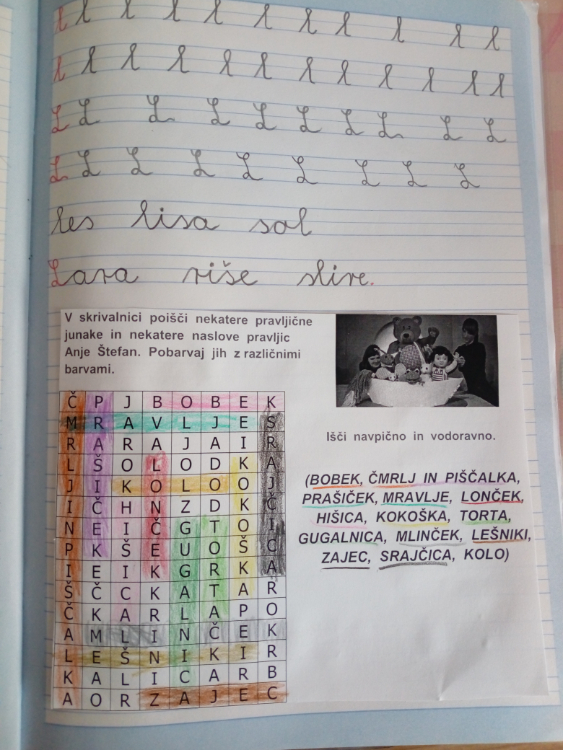 l l l l l l l l l l l
l l l l l l l l l l l l
L L L L L L L L L L
L L L L L L L L L
les lisa sol
Lara riše slive.
V skrivalnici poišči nekatere pravljične
junake in nekatere naslove pravljic
Anje Štefan. Pobarvaj jih z različnimi
barvami.
Č P J B O B E K
M R A V L J E S
R A R A J A I R
L Š O L O D K A
J I K O L O O J
I Č H N Z D K Č
N E I Č G T O I
P K Š E U O Š C
I E I K G R K A
Š Č C K A T A R
Č K A R L A P O
A M L I N Č E K
L E Š N I K I R
K A L I C A R B
A O R Z A J E C
Išči navpično in vodoravno.
(BOBEK, ČMRLJ IN PIŠČALKA,
PRAŠIČEK, MRAVLJE, LONČEK,
HIŠICA, KOKOŠKA, TORTA,
GUGALNICA, MLINČEK, LEŠNIKI,
ZAJEC, SRAJČICA, KOLO)